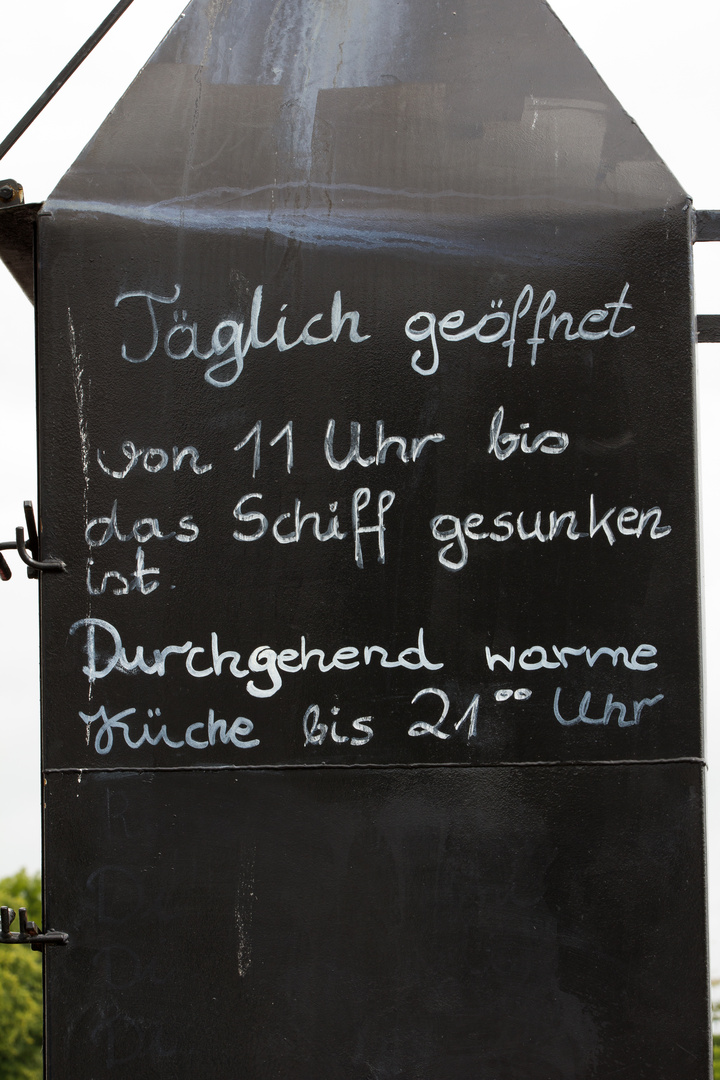 Täglich geöffnet
von 11 Uhr bis
das Schiff gesunken
ist.
Durchgehend warme
Küche bis 21⁰⁰ Uhr